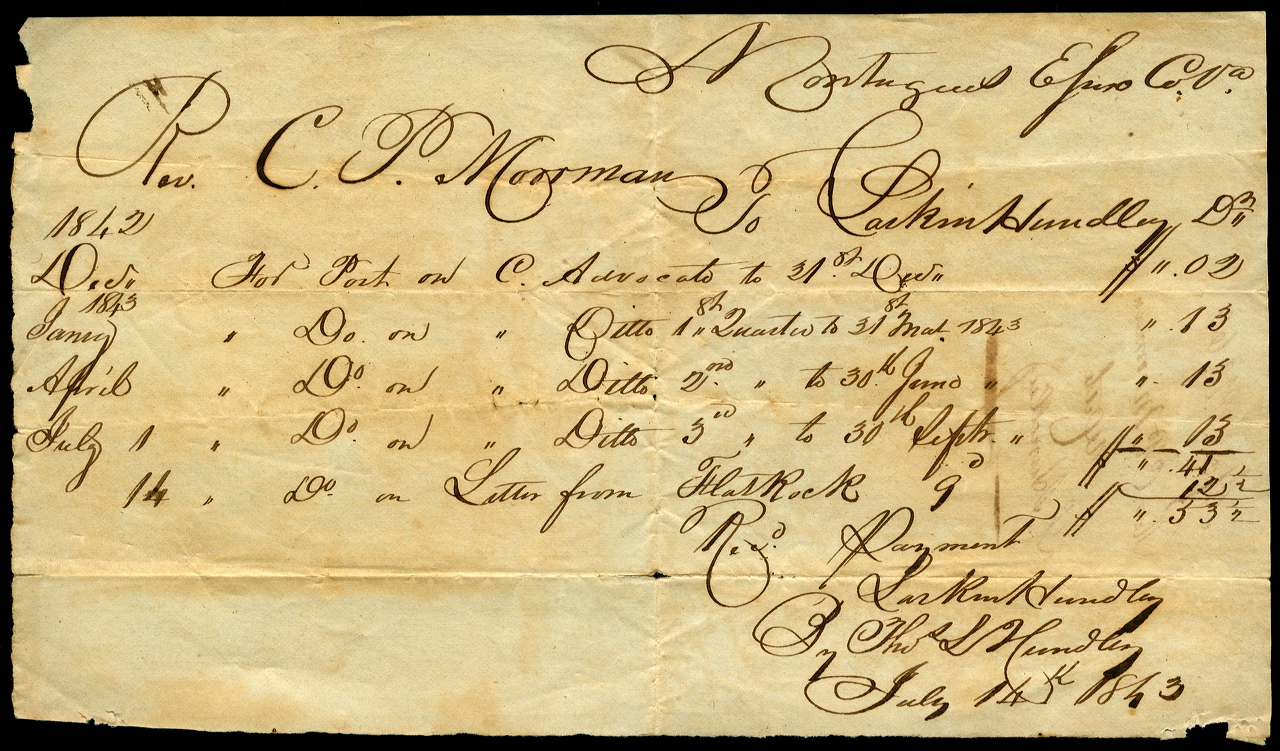 Montagues Essex Co. Va
Rev. C. P. Moorman To Larkin Hundley Dr
1842
Decr For Post on C. Advocate to 31st Decr $ " .02
1843
Janey " Do. on " Ditto 1st " Quarter to 31st Mar. 1843 " .13
April " Do. on " Ditto 2nd " to 30th June " " .13
July 1 " Do on " Ditto 3rd " to 30th Septr. " $ " .13
$ " .41
14 " Do. on Letter from Flat Rock 9d 12 1/2
$ " .53 1/2
Recd. Payment
Larkin Hundley
By Thos L Hundley
July 14th 1843